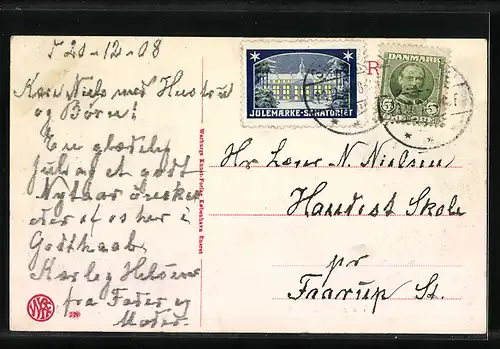 T 20-12-08
Kære Niels med Hustru
og Børn!
En glædelig
Jul og et godt
Nytaar ønskes
der af os her i
Godthaab
Kærlig Hilsen
fra Fader og
Moder.
JULEMÆRKE-SANATORIET
DANMARK
5 5
Hr Lærer N Nielsen
Handest Skole
pr
Faarup St.
Warburgs Kunst-Forlag, København Eneret